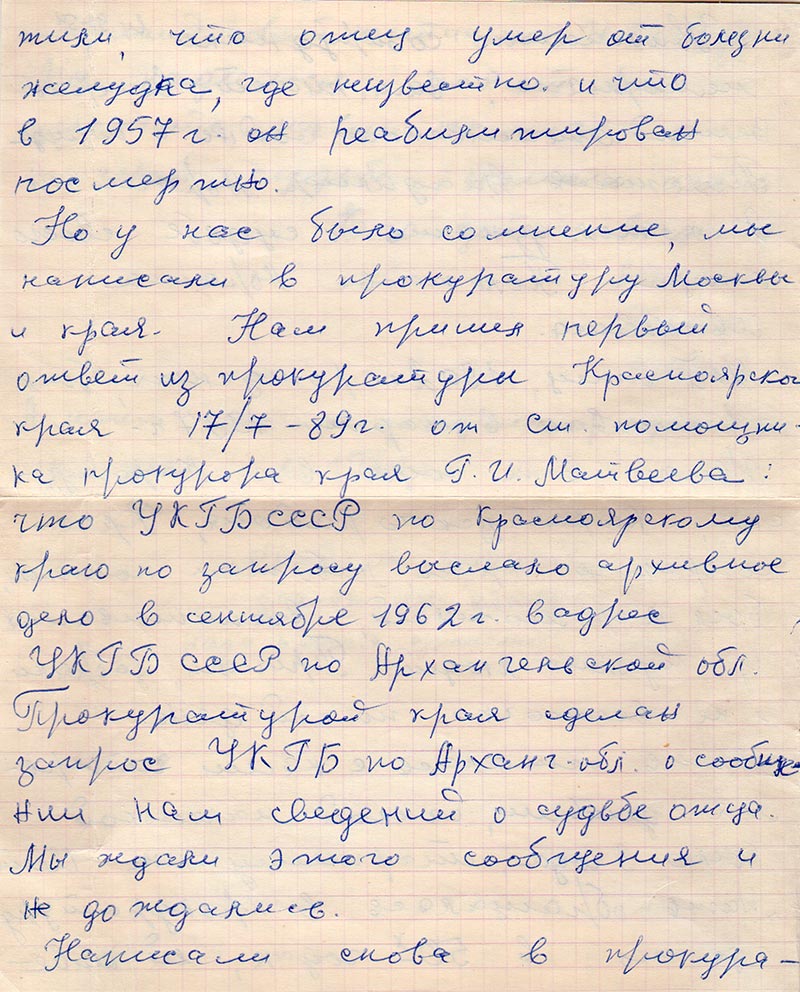 жили, что отец умер от болезни
желудка, где неизвестно. и что
в 1957 г. он реабилитирован
посмертно.
Но у нас было сомнение, мы
написали в прокуратуру Москвы
и края. Нам пришел первый
ответ из прокуратуры Красноярског
края 17/7-89г. от ст. помощни-
ка прокурора края Г. И. Матвеева:
что УКГБ СССР по Красноярскому
краю по запросу выслало архивное
дело в сентябре 1962 г. в адрес
УКГБ СССР по Архангельской обл.
Прокуратурой края сделан
запрос УКГБ по Арханг. обл. о сообще-
нии нам сведений о судьбе отца.
Мы ждали этого сообщения и
не дождались.
Написали снова в прокура-